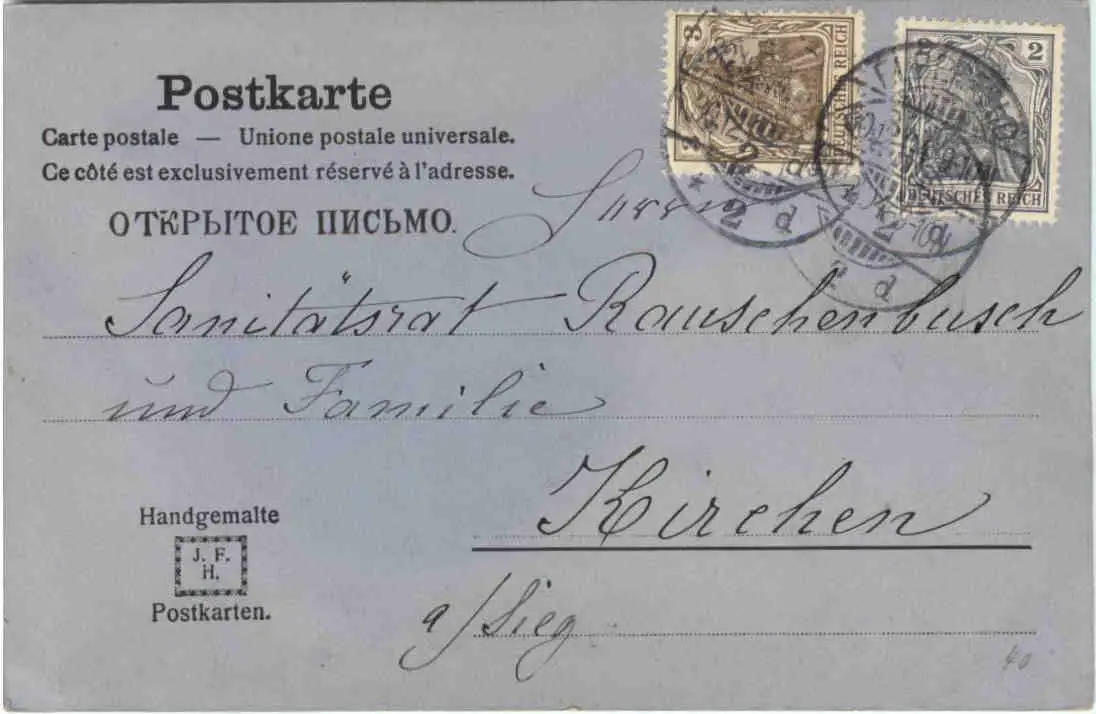 Postkarte
Carte postale — Unione postale universale.
Ce côté est exclusivement réservé à l'adresse.
ОТКРЫТОЕ ПИСЬМО.
3
DEUTSCHES REICH
2
DEUTSCHES REICH
2 d
2 d
2 d
Herrn
Sanitätsrat Rauschenbusch
und Familie
Kirchen
a/Sieg
Handgemalte
J. F.
H.
Postkarten.
40